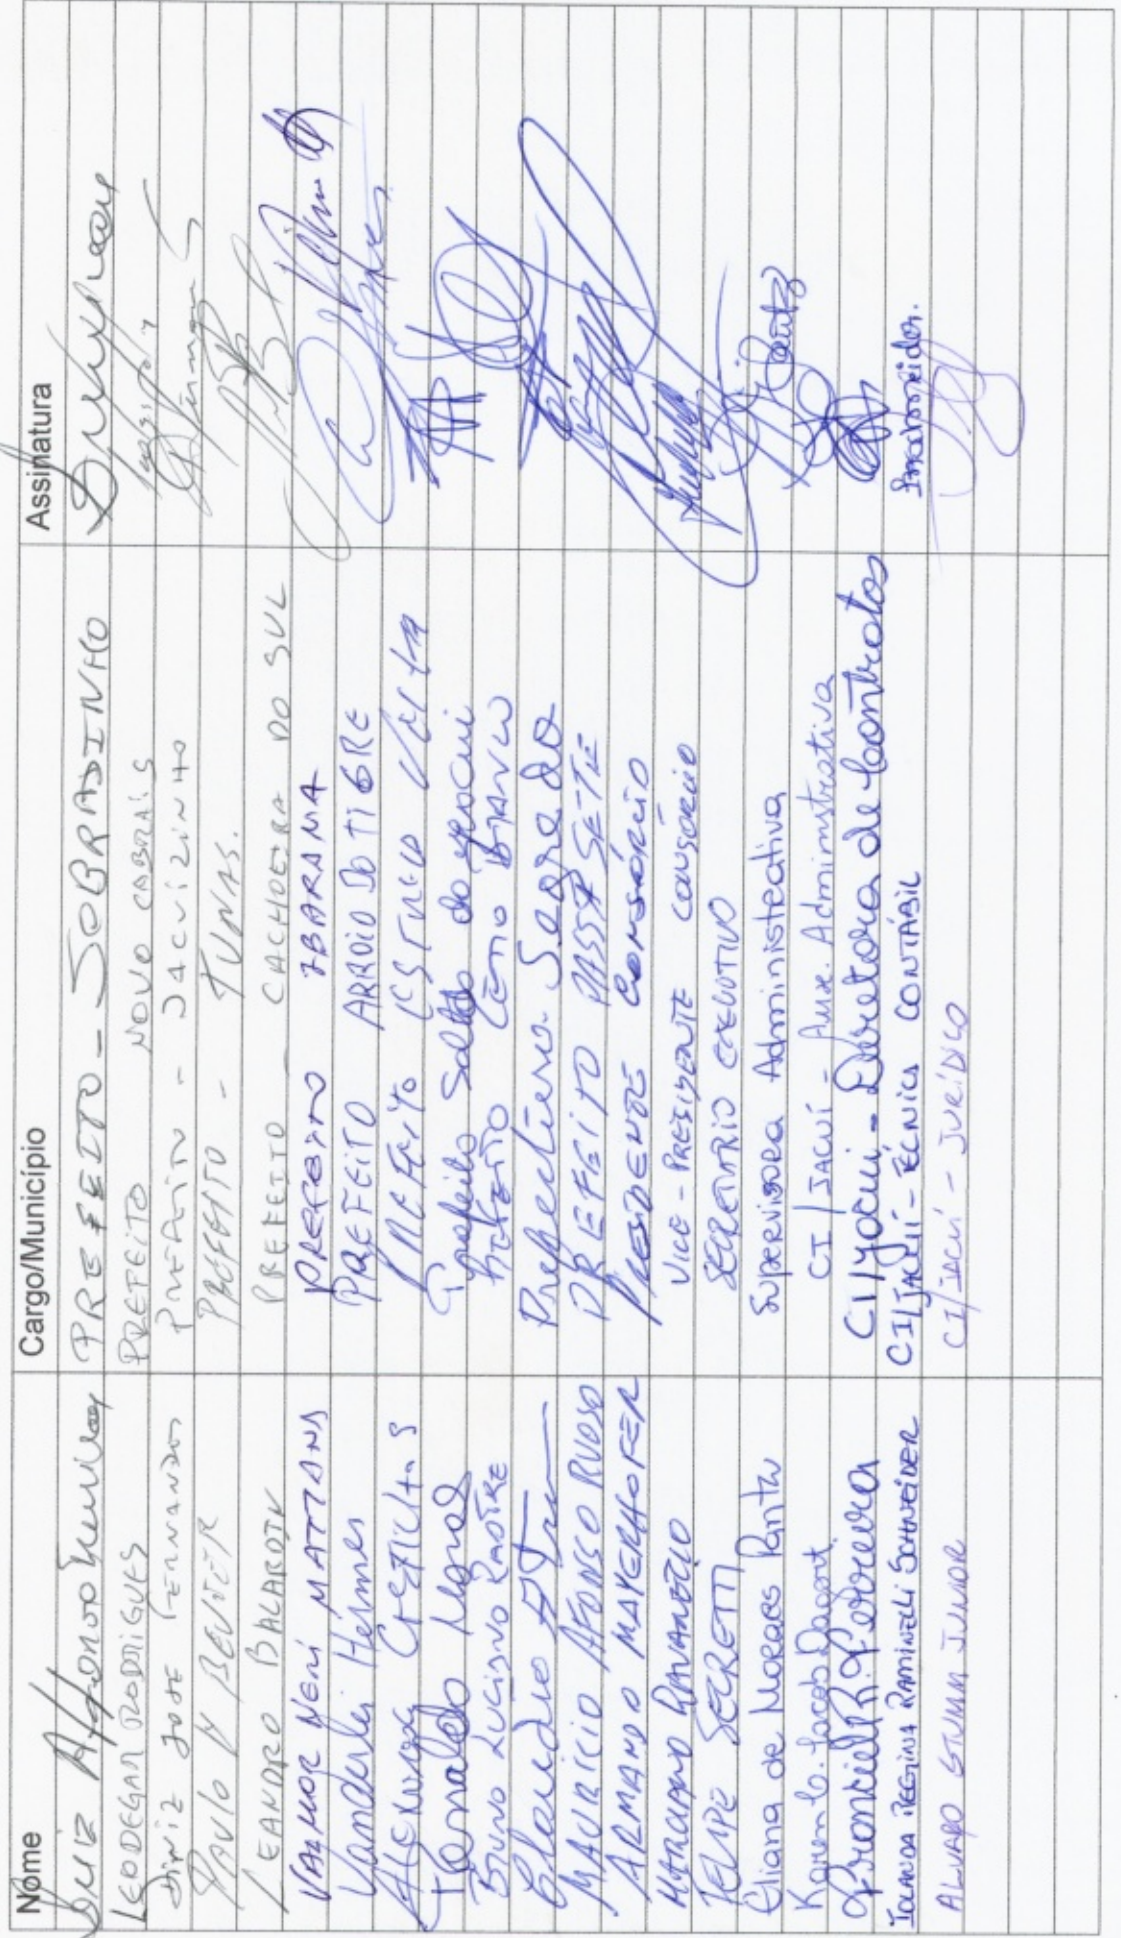 Nome Cargo/Município Assinatura
Luiz Afonso PREFEITO - SOBRADINHO
LEODEGAR RODRIGUES PREFEITO NOVO CABRAIS
DINIZ JOSE FERNANDES PREFEITO - JACUIZINHO
PAULO PREFEITO - TUNAS.
LEANDRO BALARDIN PREFEITO - CACHOEIRA DO SUL
VALMOR NERI MATTANA PREFEITO IBARAMA
Vanderlei Hermes PREFEITO ARROIO DO TIGRE
PREFEITO ESTRELA VELHA
Ronaldo Prefeito Salto do Jacuí
BRUNO LUCIANO RADTKE PREFEITO CERRO BRANCO
Claudio Prefeitura Segredo
MAURICIO AFONSO RUOSO PREFEITO PASSA SETE
ARMANDO MAYERHOFER PRESIDENTE CONSÓRCIO
MARCIANO RAVANELLO VICE-PRESIDENTE CONSÓRCIO
FELIPE SECRETTI SECRETÁRIO EXECUTIVO
Eliana de Moraes SUPERVISORA Administrativa
Karen L. Jacob Dagort CI/JACUÍ - Aux. Administrativa
Franciele R. Ferreira CI/Jacui - Diretora de Contratos
IOLANDA REGINA RAMINELI SCHNEIDER CI/JACUÍ - TÉCNICA CONTÁBIL
ALVARO STUMM JUNIOR CI/JACUÍ - JURÍDICO